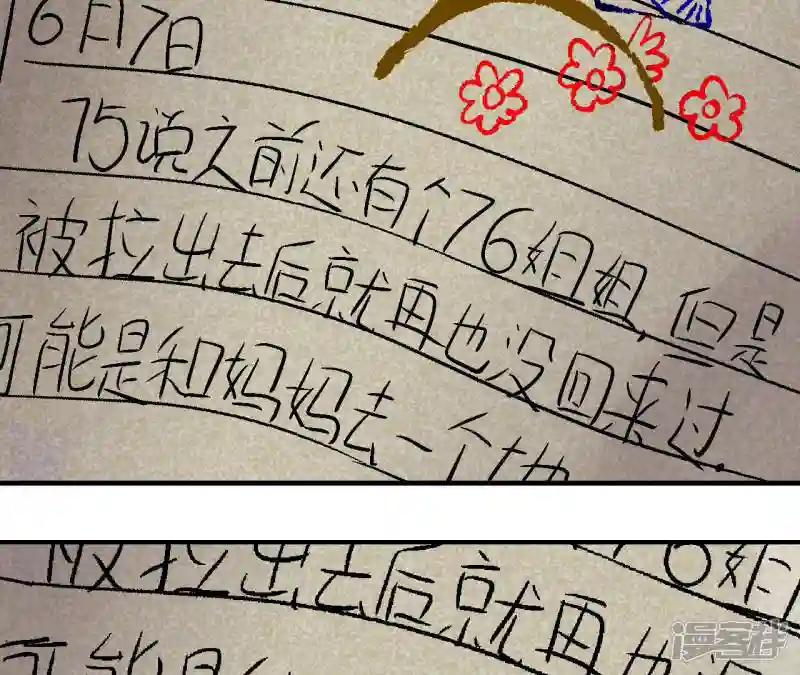 6月7日
75说之前还有个76姐姐,但是
被拉出去后就再也没回来过.
可能是和妈妈去一个地
76姐
被拉出去后就再也没
可能是
漫客栈